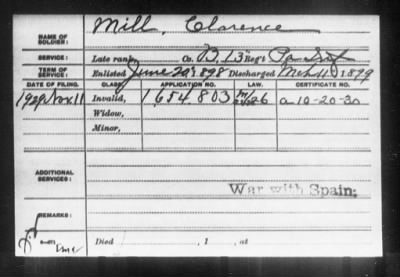 NAME OF SOLDIER: Mill, Clarence
SERVICE: Late rank, Co. B, 13" Reg't Pa Inf
TERM OF SERVICE: Enlisted June 29, 1898 Discharged Mch 11, 1899
DATE OF FILING. CLASS. APPLICATION NO. LAW. CERTIFICATE NO.
1929 Nov. 11 Invalid, 1 654 803 a-10-20-30
Widow,
Minor,
ADDITIONAL SERVICES:
War with Spain;
REMARKS:
Died , 1 , at